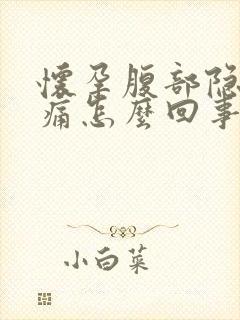 懷孕腹部隐
痛怎麽回事
小白菜